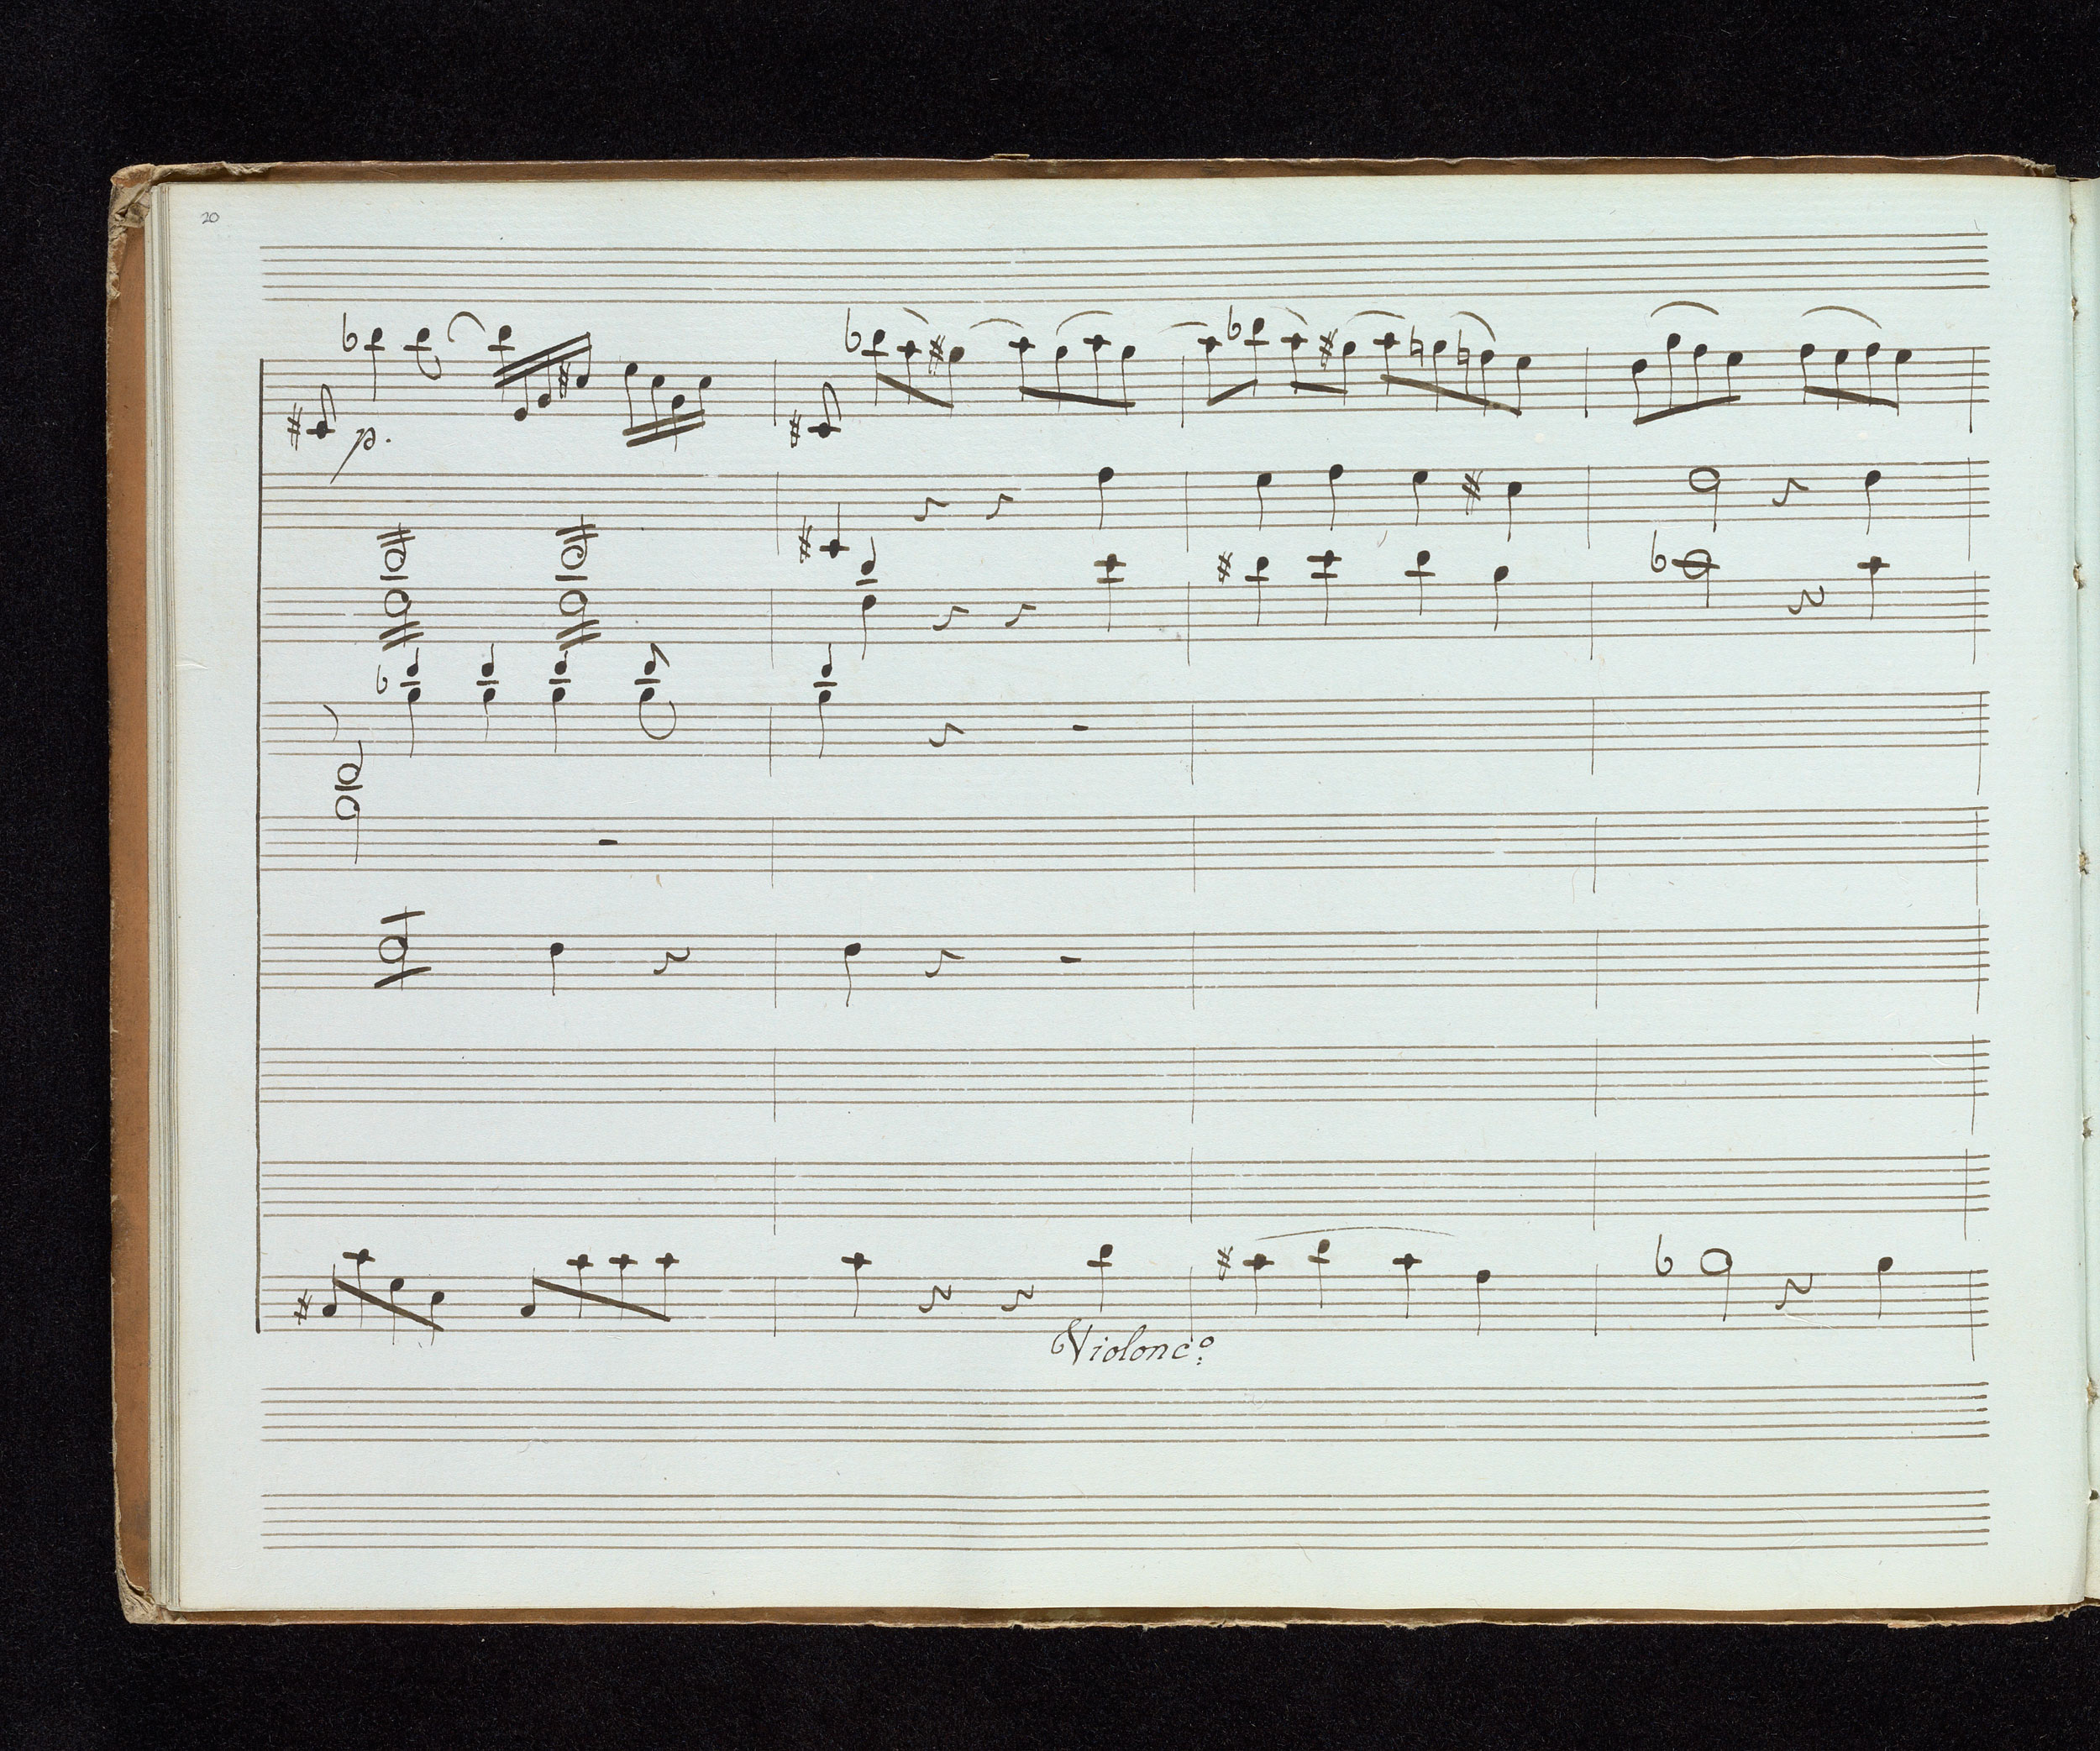 20
p.
Violonc:o